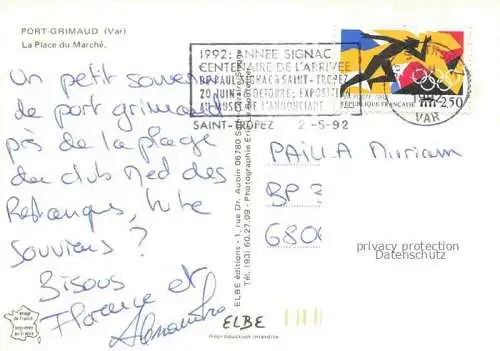 PORT-GRIMAUD (Var)
La Place du Marché.
1992: ANNEE SIGNAC
CENTENAIRE DE L'ARRIVEE
DE PAUL SIGNAC A SAINT-TROPEZ
20 JUIN OCTOBRE: EXPOSITION
AU MUSEE DE L'ANNONCIADE
SAINT-TROPEZ 2-5-92
VAR
LA POSTE 1992
REPUBLIQUE FRANÇAISE 2,50
Un petit souvenir
de port grimaud
près de la plage
du club Med des
te
souviens ?
Bisous
Florence et
Alessandro
PAILLA Myriam
BP 3
6800
privacy protection
Datenschutz
ELBE éditions - 1, rue Dr. Aubin 06780
Tél. (93) 60.27.09 - Photographie
image de France
imprimée en France
ELBE
Reproduction interdite